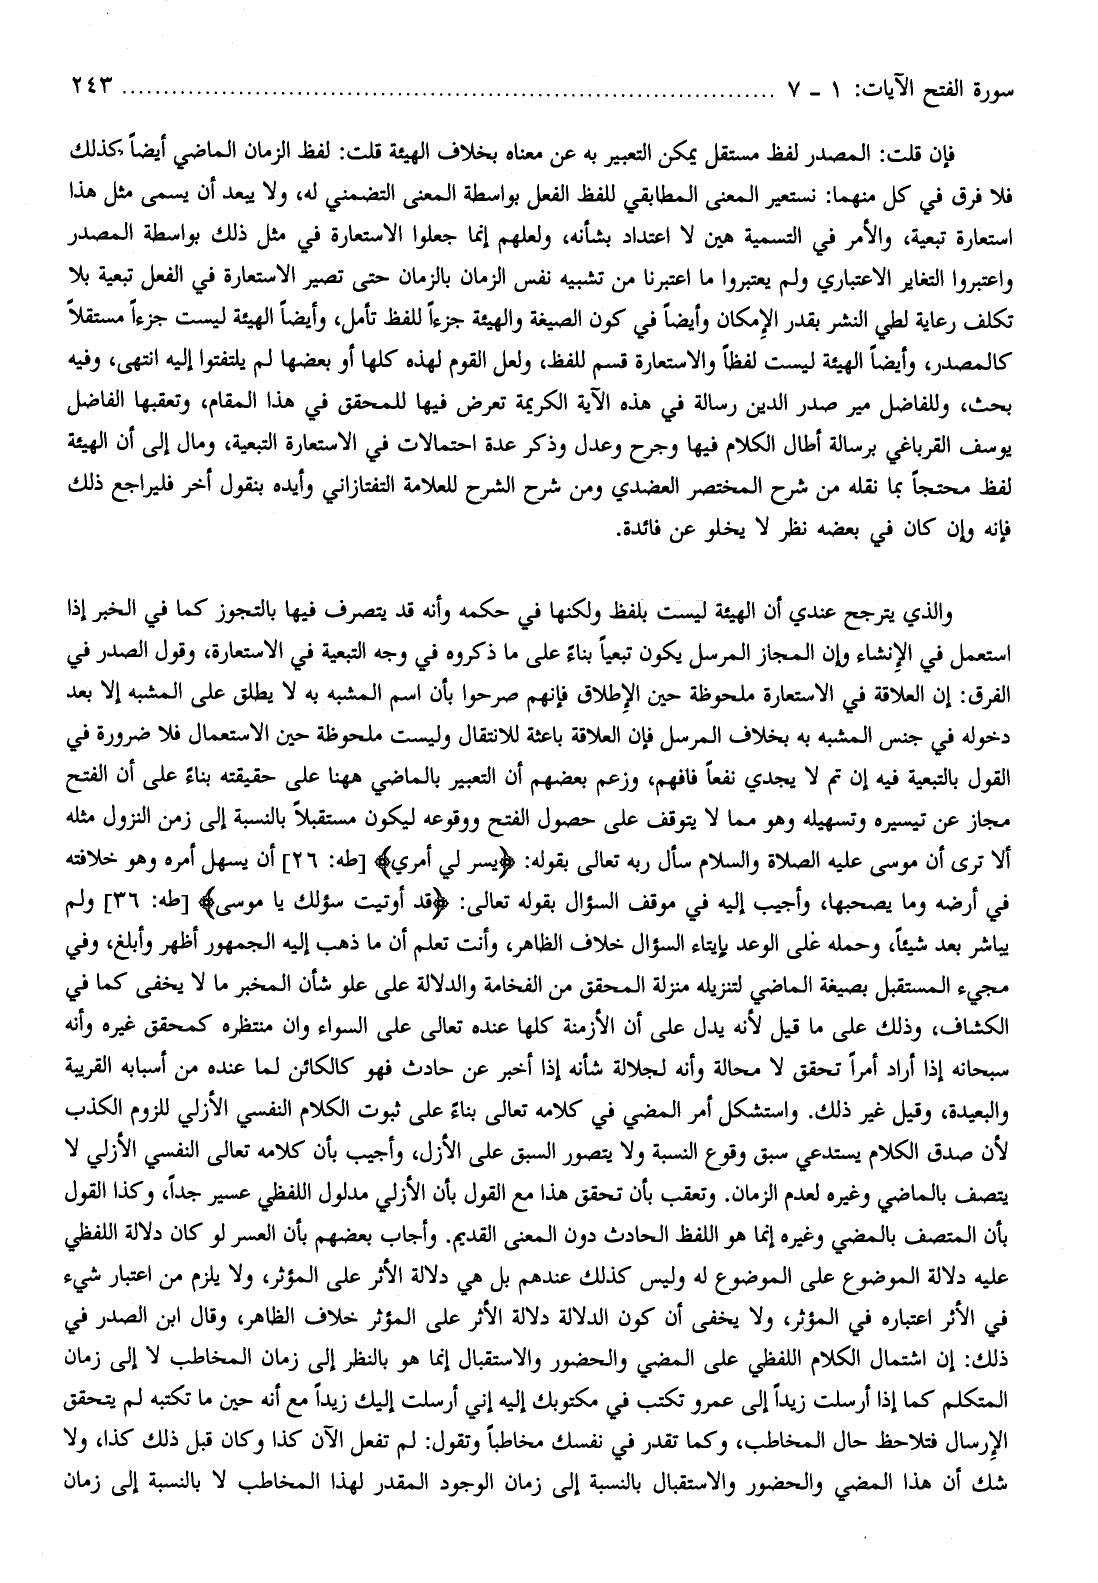 سورة الفتح الآيات: ١ - ٧ ................................................................................ ٢٤٣
فإن قلت: المصدر لفظ مستقل يمكن التعبير به عن معناه بخلاف الهيئة قلت: لفظ الزمان الماضي أيضاً كذلك
فلا فرق في كل منهما: نستعير المعنى المطابقي للفظ الفعل بواسطة المعنى التضمني له، ولا يبعد أن يسمى مثل هذا
استعارة تبعية، والأمر في التسمية هين لا اعتداد بشأنه، ولعلهم إنما جعلوا الاستعارة في مثل ذلك بواسطة المصدر
واعتبروا التغاير الاعتباري ولم يعتبروا ما اعتبرنا من تشبيه نفس الزمان بالزمان حتى تصير الاستعارة في الفعل تبعية بلا
تكلف رعاية لطي النشر بقدر الإمكان وأيضاً في كون الصيغة والهيئة جزءاً للفظ تأمل، وأيضاً الهيئة ليست جزءاً مستقلاً
كالمصدر، وأيضاً الهيئة ليست لفظاً والاستعارة قسم للفظ، ولعل القوم لهذه كلها أو بعضها لم يلتفتوا إليه انتهى، وفيه
بحث، وللفاضل مير صدر الدين رسالة في هذه الآية الكريمة تعرض فيها للمحقق في هذا المقام، وتعقبها الفاضل
يوسف القرباغي برسالة أطال الكلام فيها وجرح وعدل وذكر عدة احتمالات في الاستعارة التبعية، ومال إلى أن الهيئة
لفظ محتجاً بما نقله من شرح المختصر العضدي ومن شرح الشرح للعلامة التفتازاني وأيده بنقول أخر فليراجع ذلك
فإنه وإن كان في بعضه نظر لا يخلو عن فائدة.
والذي يترجح عندي أن الهيئة ليست بلفظ ولكنها في حكمه وأنه قد يتصرف فيها بالتجوز كما في الخبر إذا
استعمل في الإنشاء وإن المجاز المرسل يكون تبعياً بناءً على ما ذكروه في وجه التبعية في الاستعارة، وقول الصدر في
الفرق: إن العلاقة في الاستعارة ملحوظة حين الإطلاق فإنهم صرحوا بأن اسم المشبه به لا يطلق على المشبه إلا بعد
دخوله في جنس المشبه به بخلاف المرسل فإن العلاقة باعثة للانتقال وليست ملحوظة حين الاستعمال فلا ضرورة في
القول بالتبعية فيه إن تم لا يجدي نفعاً فافهم، وزعم بعضهم أن التعبير بالماضي ههنا على حقيقته بناءً على أن الفتح
مجاز عن تيسيره وتسهيله وهو مما لا يتوقف على حصول الفتح ووقوعه ليكون مستقبلاً بالنسبة إلى زمن النزول مثله
ألا ترى أن موسى عليه الصلاة والسلام سأل ربه تعالى بقوله: ﴿يسر لي أمري﴾ [طه: ٢٦] أن يسهل أمره وهو خلافته
في أرضه وما يصحبها، وأجيب إليه في موقف السؤال بقوله تعالى: ﴿قد أوتيت سؤلك يا موسى﴾ [طه: ٣٦] ولم
يباشر بعد شيئاً، وحمله على الوعد بإيتاء السؤال خلاف الظاهر، وأنت تعلم أن ما ذهب إليه الجمهور أظهر وأبلغ، وفي
مجيء المستقبل بصيغة الماضي لتنزيله منزلة المحقق من الفخامة والدلالة على علو شأن المخبر ما لا يخفى كما في
الكشاف، وذلك على ما قيل لأنه يدل على أن الأزمنة كلها عنده تعالى على السواء وان منتظره كمحقق غيره وأنه
سبحانه إذا أراد أمراً تحقق لا محالة وأنه لجلالة شأنه إذا أخبر عن حادث فهو كالكائن لما عنده من أسبابه القريبة
والبعيدة، وقيل غير ذلك. واستشكل أمر المضي في كلامه تعالى بناءً على ثبوت الكلام النفسي الأزلي للزوم الكذب
لأن صدق الكلام يستدعي سبق وقوع النسبة ولا يتصور السبق على الأزل، وأجيب بأن كلامه تعالى النفسي الأزلي لا
يتصف بالماضي وغيره لعدم الزمان. وتعقب بأن تحقق هذا مع القول بأن الأزلي مدلول اللفظي عسير جداً، وكذا القول
بأن المتصف بالمضي وغيره إنما هو اللفظ الحادث دون المعنى القديم. وأجاب بعضهم بأن العسر لو كان دلالة اللفظي
عليه دلالة الموضوع على الموضوع له وليس كذلك عندهم بل هي دلالة الأثر على المؤثر، ولا يلزم من اعتبار شيء
في الأثر اعتباره في المؤثر، ولا يخفى أن كون الدلالة دلالة الأثر على المؤثر خلاف الظاهر، وقال ابن الصدر في
ذلك: إن اشتمال الكلام اللفظي على المضي والحضور والاستقبال إنما هو بالنظر إلى زمان المخاطب لا إلى زمان
المتكلم كما إذا أرسلت زيداً إلى عمرو تكتب في مكتوبك إليه إني أرسلت إليك زيداً مع أنه حين ما تكتبه لم يتحقق
الإرسال فتلاحظ حال المخاطب، وكما تقدر في نفسك مخاطباً وتقول: لم تفعل الآن كذا وكان قبل ذلك كذا، ولا
شك أن هذا المضي والحضور والاستقبال بالنسبة إلى زمان الوجود المقدر لهذا المخاطب لا بالنسبة إلى زمان